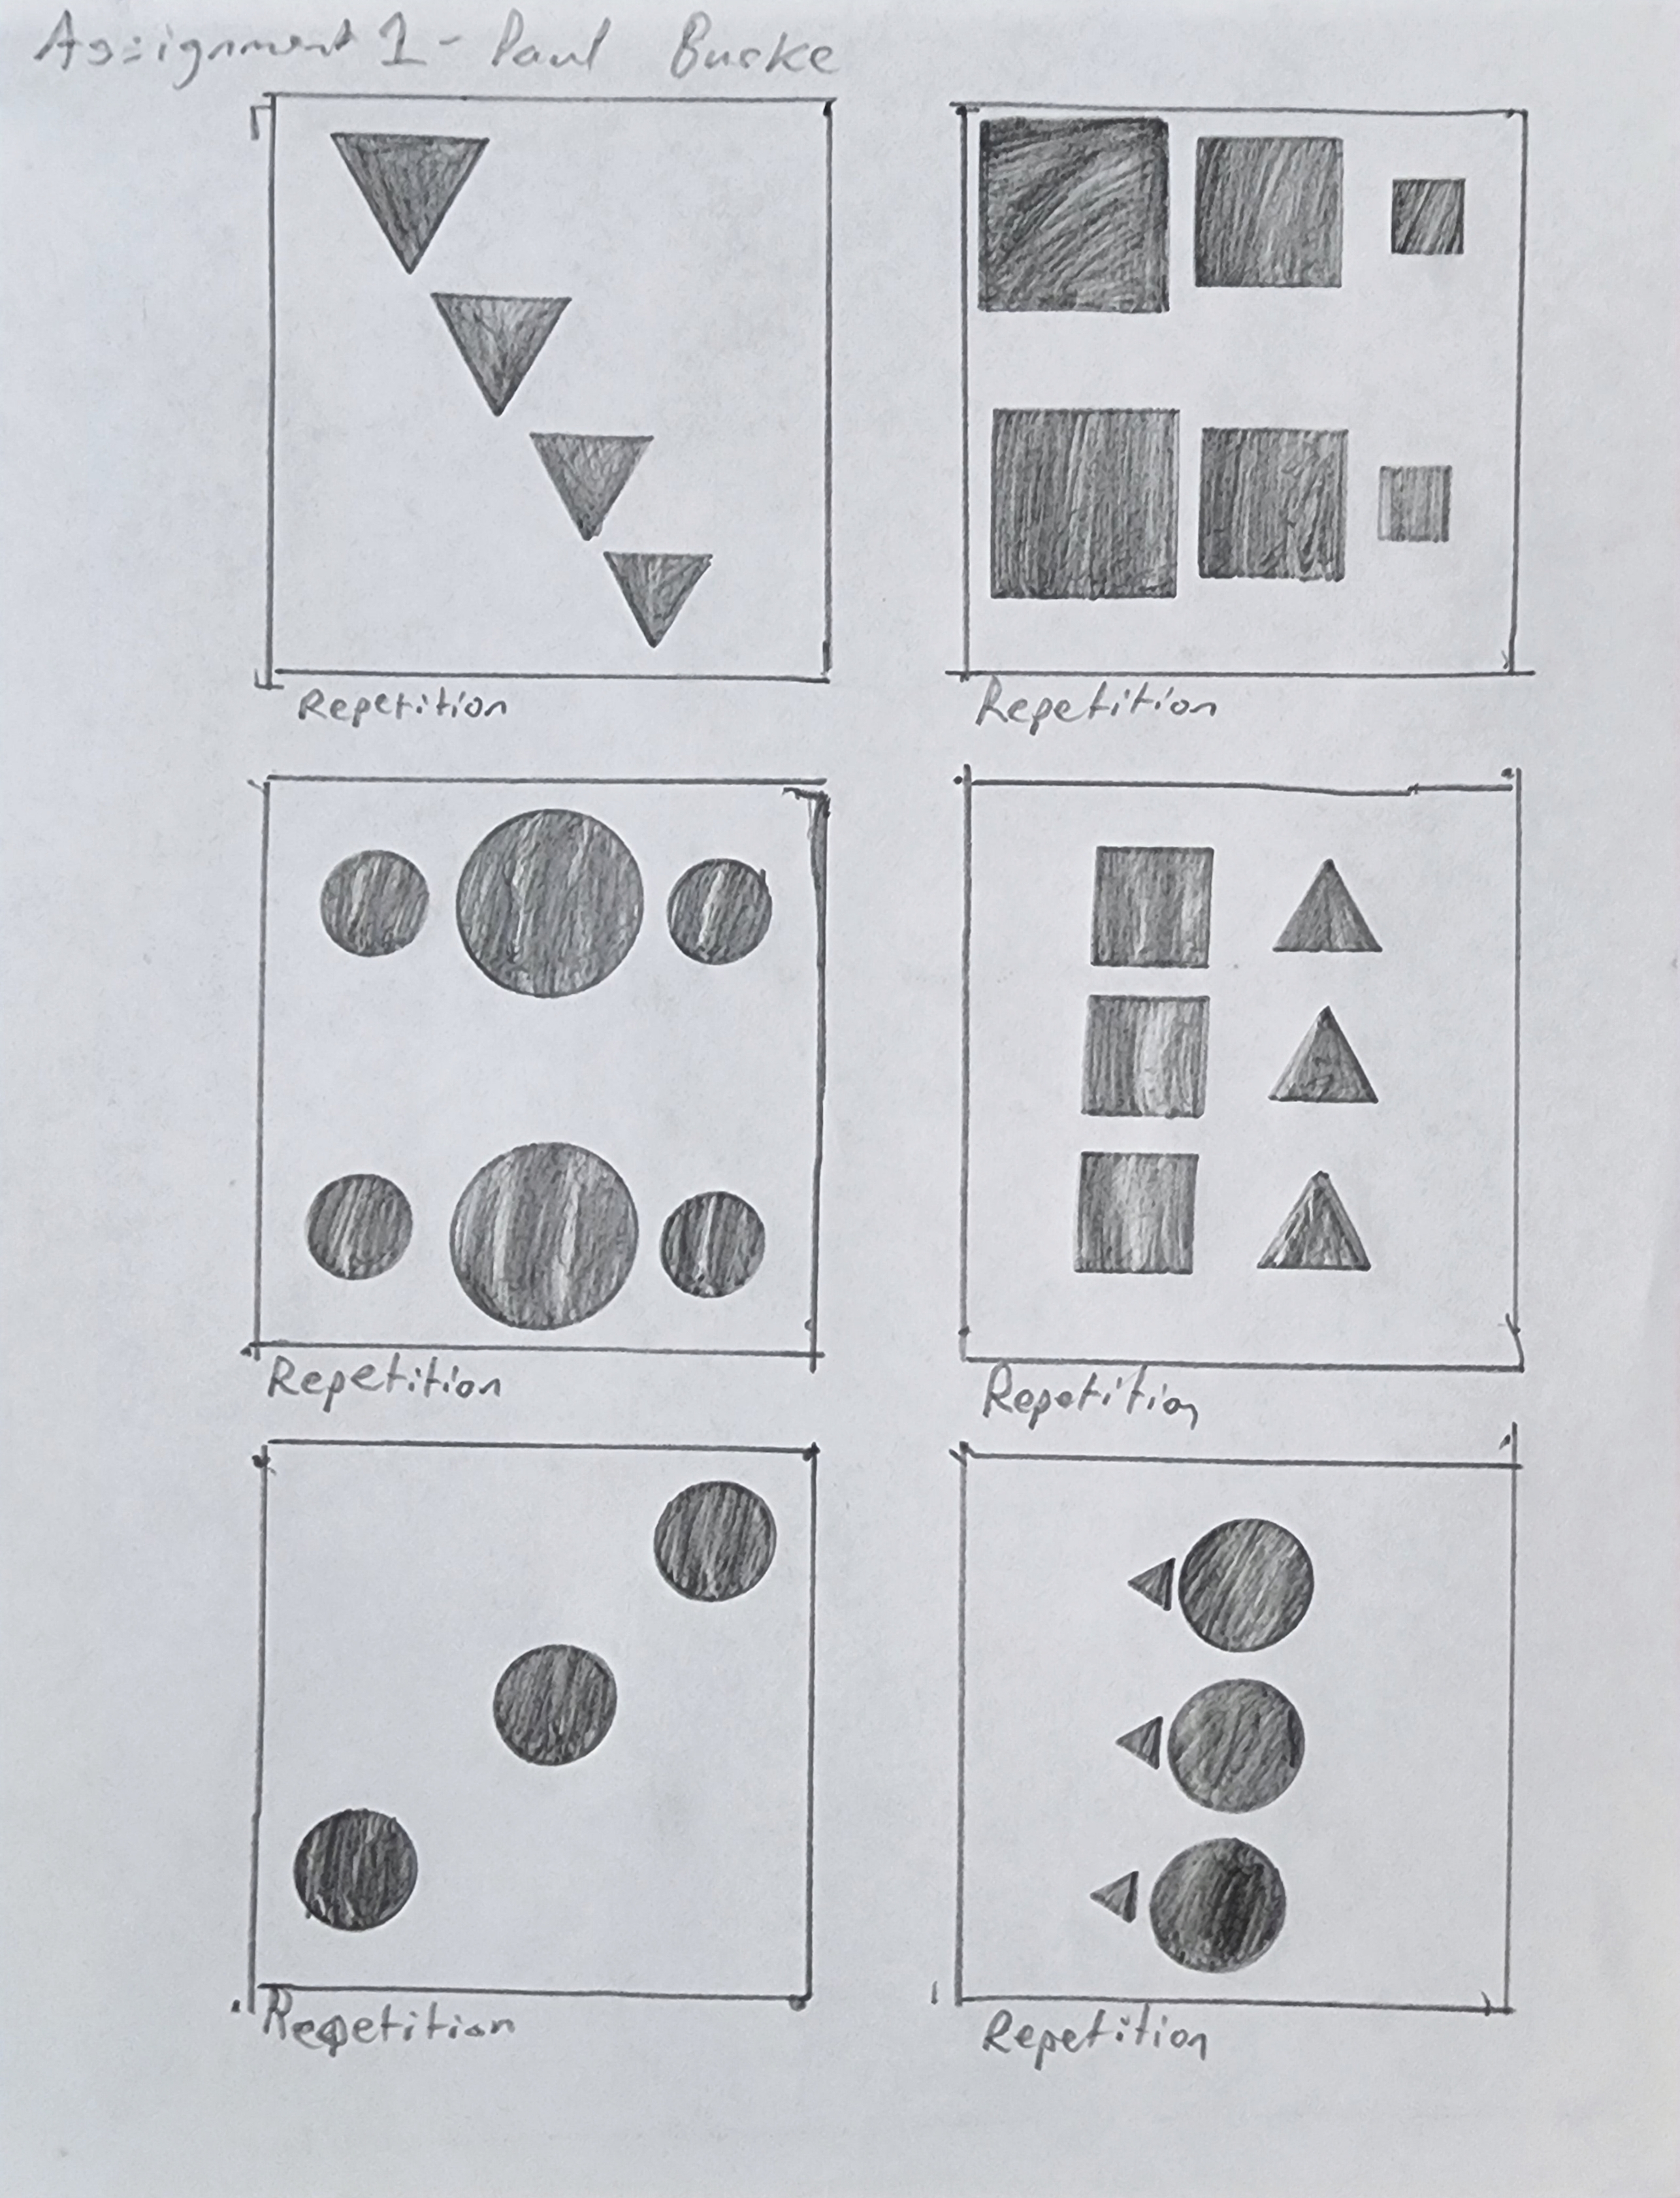 Assignment 1 - Paul Burke
Repetition
Repetition
Repetition
Repetition
Repetition
Repetition